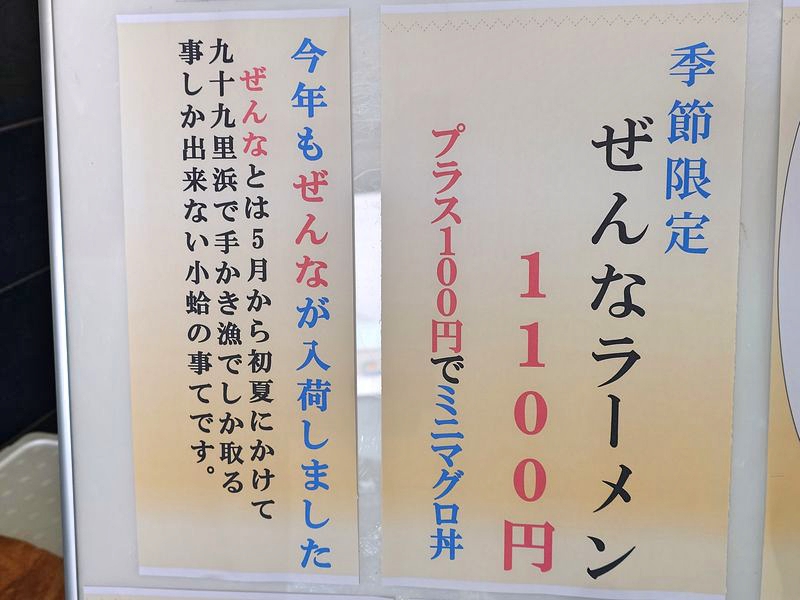 季節限定
ぜんなラーメン
1100円
プラス100円でミニマグロ丼
今年もぜんなが入荷しました
ぜんなとは5月から初夏にかけて
九十九里浜で手かき漁でしか取る
事しか出来ない小蛤の事てです。